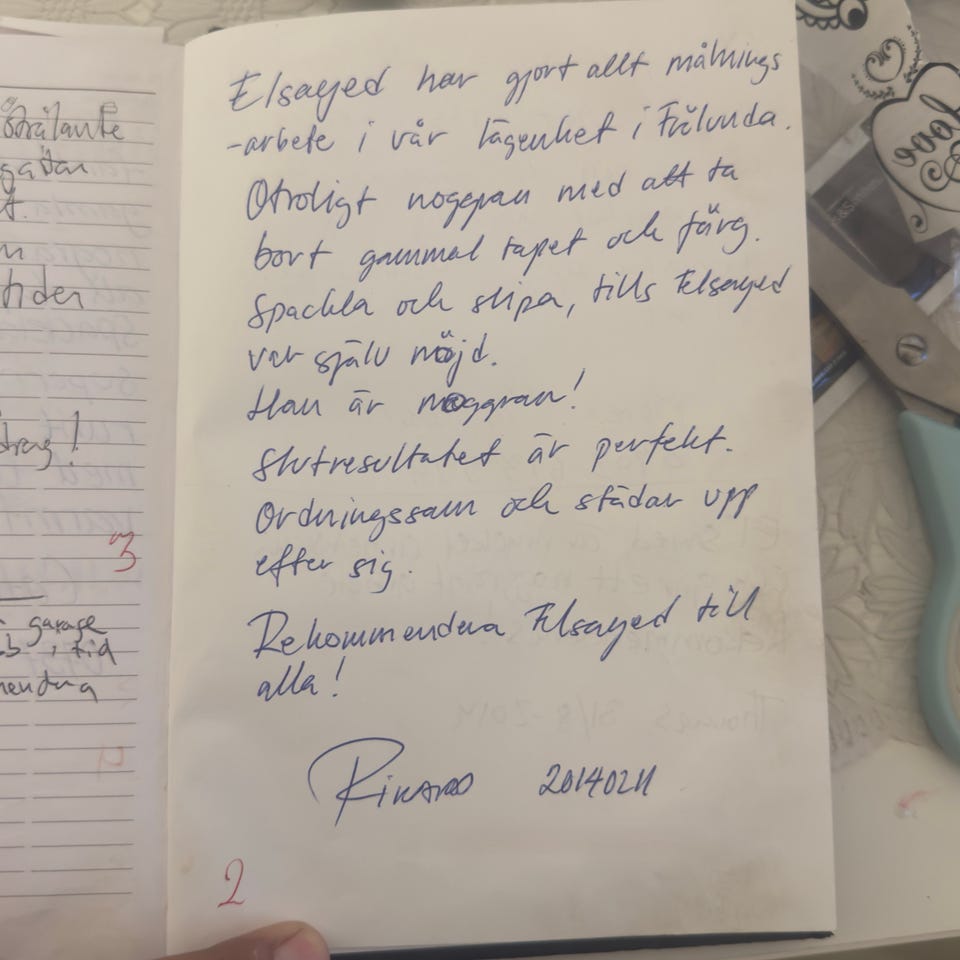 Elsayed har gjort allt målnings
-arbete i vår lägenhet i Frölunda.
Otroligt noggran med att ta
bort gammal tapet och färg.
Spackla och slipa, tills Elsayed
var själv nöjd.
Han är noggran!
Slutresultatet är perfekt.
Ordningssam och städar upp
efter sig.
Rekommendera Elsayed till
alla!
Rikard 20140211
2
gatan
t.
tiden
3
garage
, tid
4
love